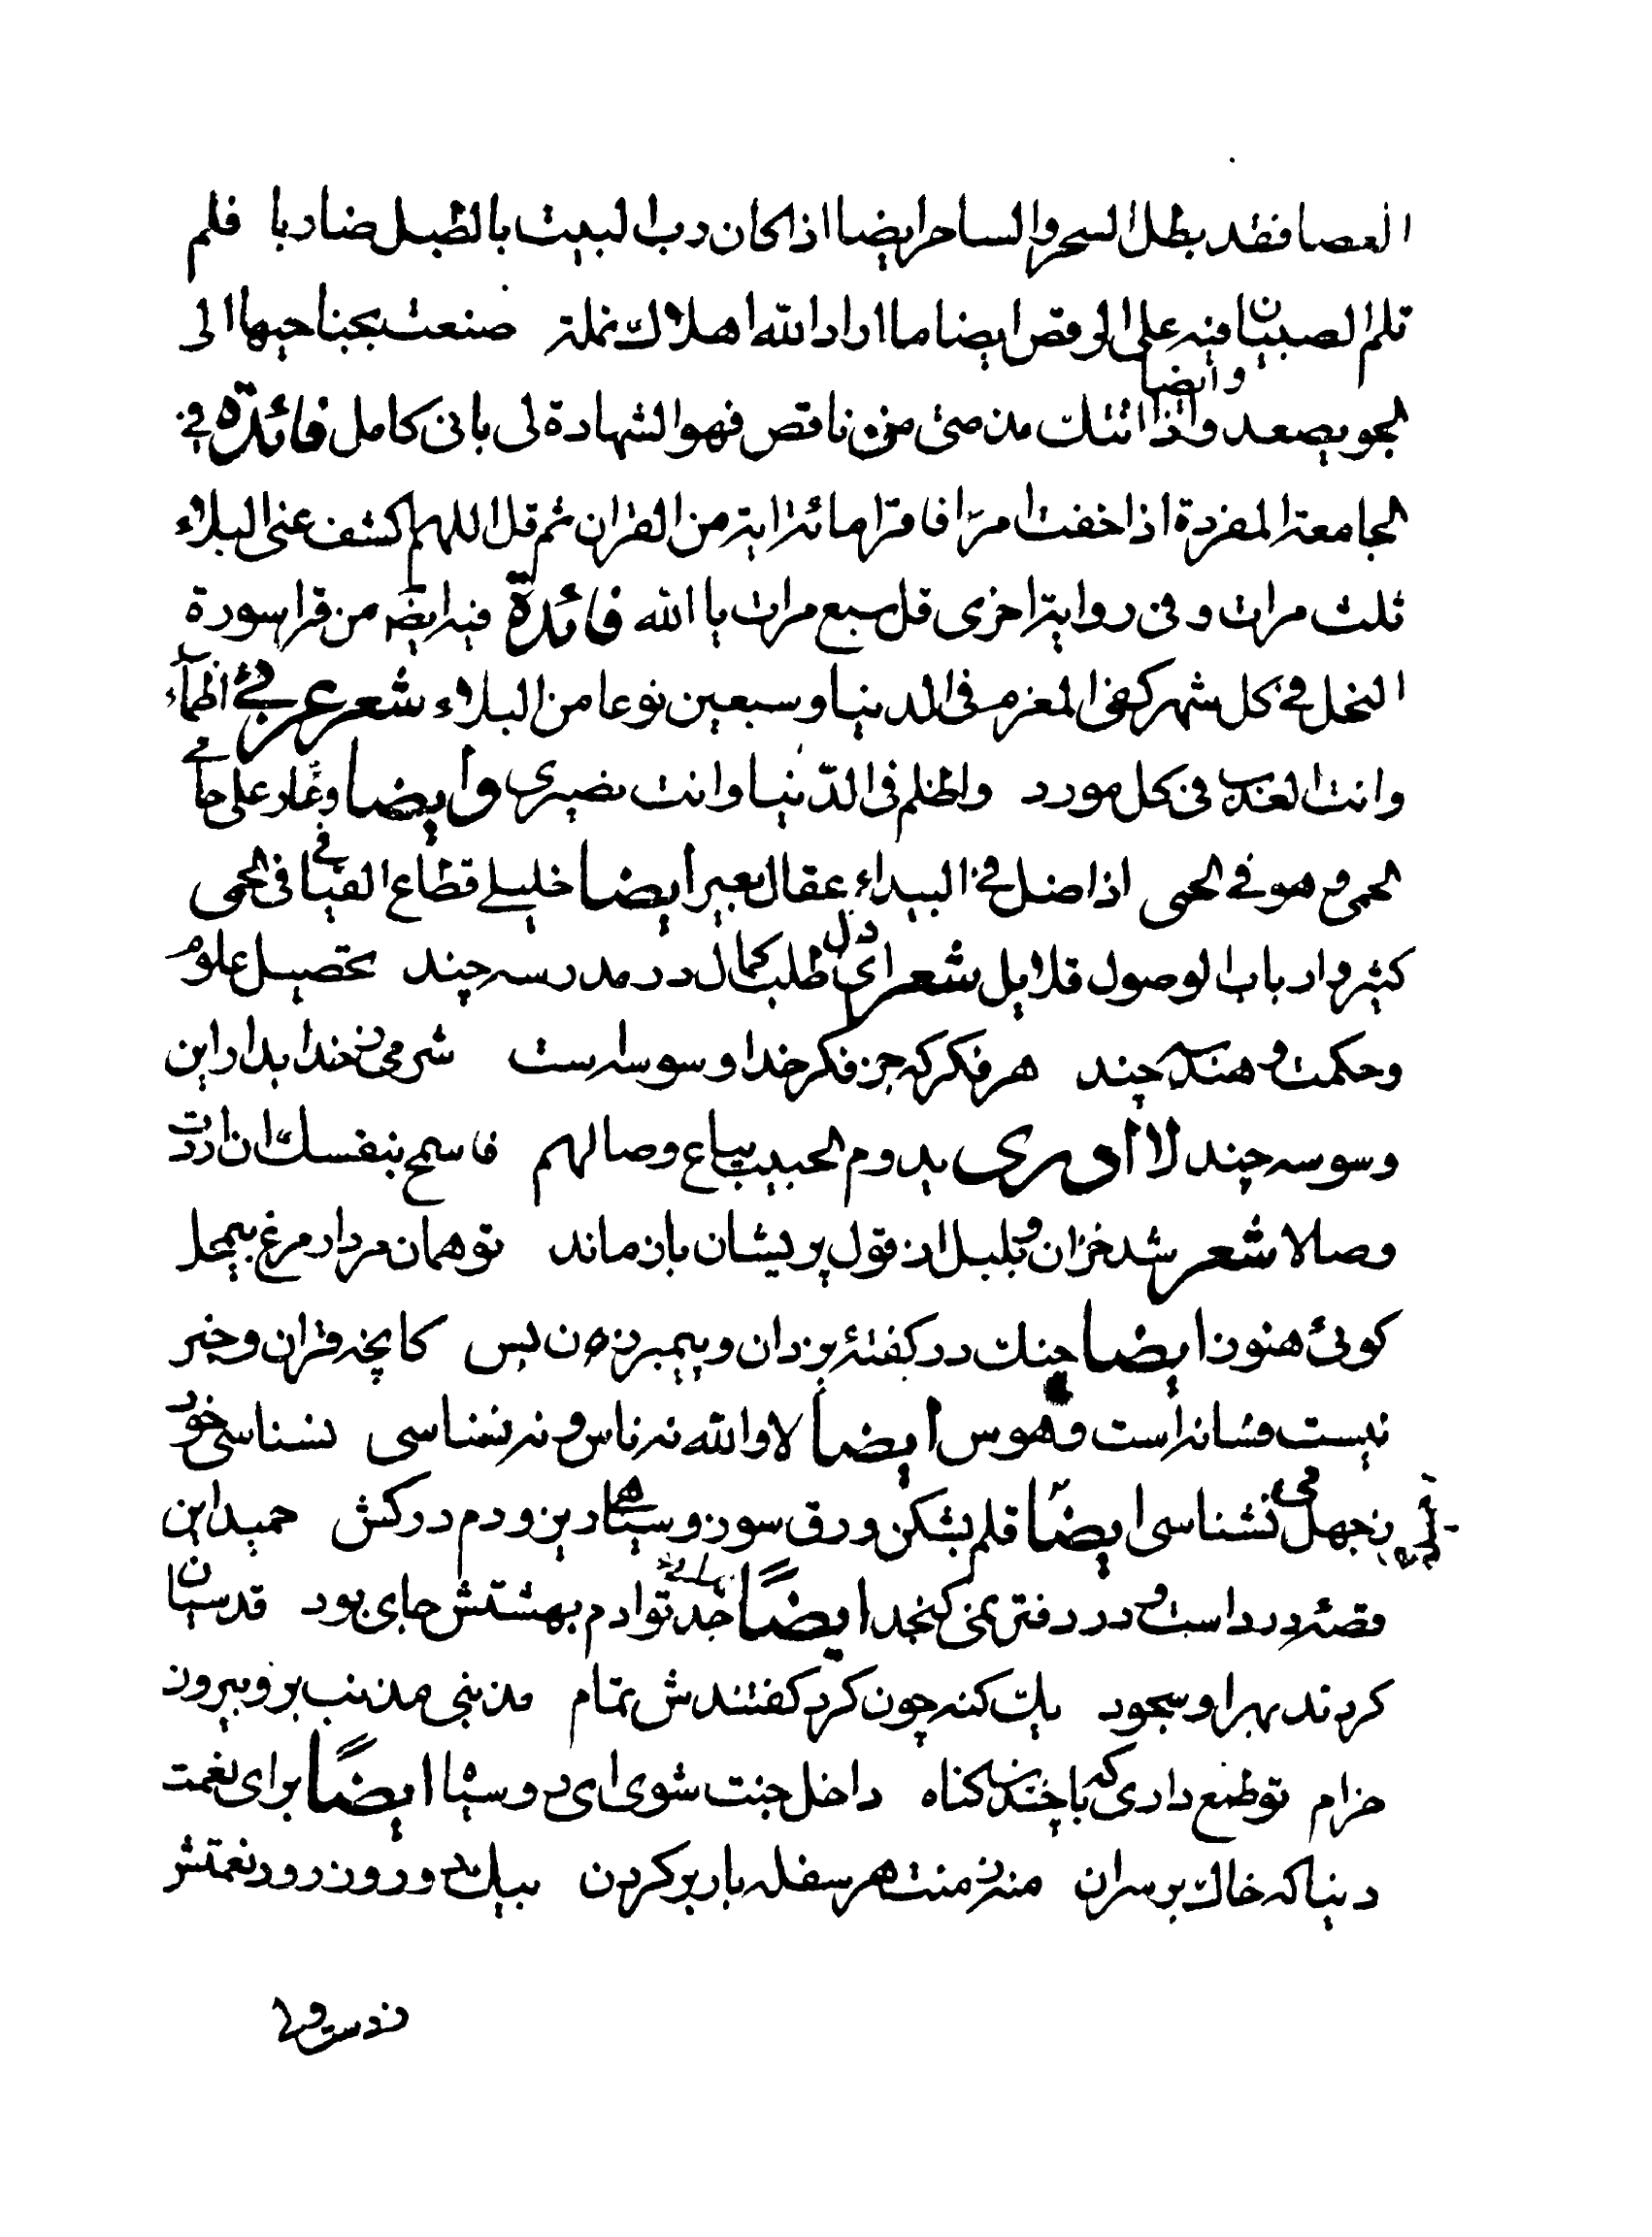 العصا فقد بطل السحر والساحر ايضا اذا كان رب البيت بالطبل ضاربا فلم
تلم الصبيان فيه على الرقص ايضا ما اراد الله اهلاك نملة صنعت بجناحيها الى
الجو يصعد وايضا واذا اتتك مذمتى من ناقص فهو الشهادة لى بانى كامل فائدة فى
الجامعة المفردة اذا خفت امرا فاقرا مائة اية من القران ثم قل اللهم اكشف عنى البلاء
ثلث مرات وفى رواية اخرى قل سبع مرات يا الله فائدة فيه ايضا من قرا سورة
النحل فى كل شهر كفى المغرم فى الدنيا وسبعين نوعا من البلاء شعر عربى اظماء
وانت العذب فى كل مورد واظلم فى الدنيا وانت نصيرى وايضا وعار على حامى
الحمى وهو فى الحمى اذا ضل فى البيداء عقال بعير ايضا خليلى قطاع الفيافى فى الحمى
كثير وارباب الوصول قلايل شعر اى دل طلب كمال در مدرسه چند تحصيل علوم
وحكمت وهندسه چند هر فكر كه جز فكر خدا وسوسه است شرمى ز خدا بدار اين
وسوسه چند لا ادرى بدوم الحبيب يباع وصالهم فاسمح بنفسك ان اردت
وصالا شعر شد خزان و بلبل از قول پريشان باز ماند تو همان مردار مرغ بيمحل
كوئى هنوز ايضا چنك در كفته يزدان و پيمبر زن بس كانچه قران و خبر
نيست فسانه است وهوس ايضا لا والله نه ناس و نه نسناسى نشناسى خود
ز جهل مى نشناسى ايضا قلم بشكن ورق سوز و سياهى ريز و دم دركش حميد اين
قصه درد است و در دفتر نمى كنجد ايضا جد تو ادم بهشتش جاى بود قدسيان
كردند بهر او سجود يك كنه چون كرد كفتندش تمام مذنبى مذنب برو بيرون
خرام تو طمع دارى كه با چندين كناه داخل جنت شوى اى رو سياه ايضا براى نعمت
دنيا كه خاك بر سر ان منه ز منت هر سفله بار بر كردن بيك دو روز رود نعمتش
ز دست ولى